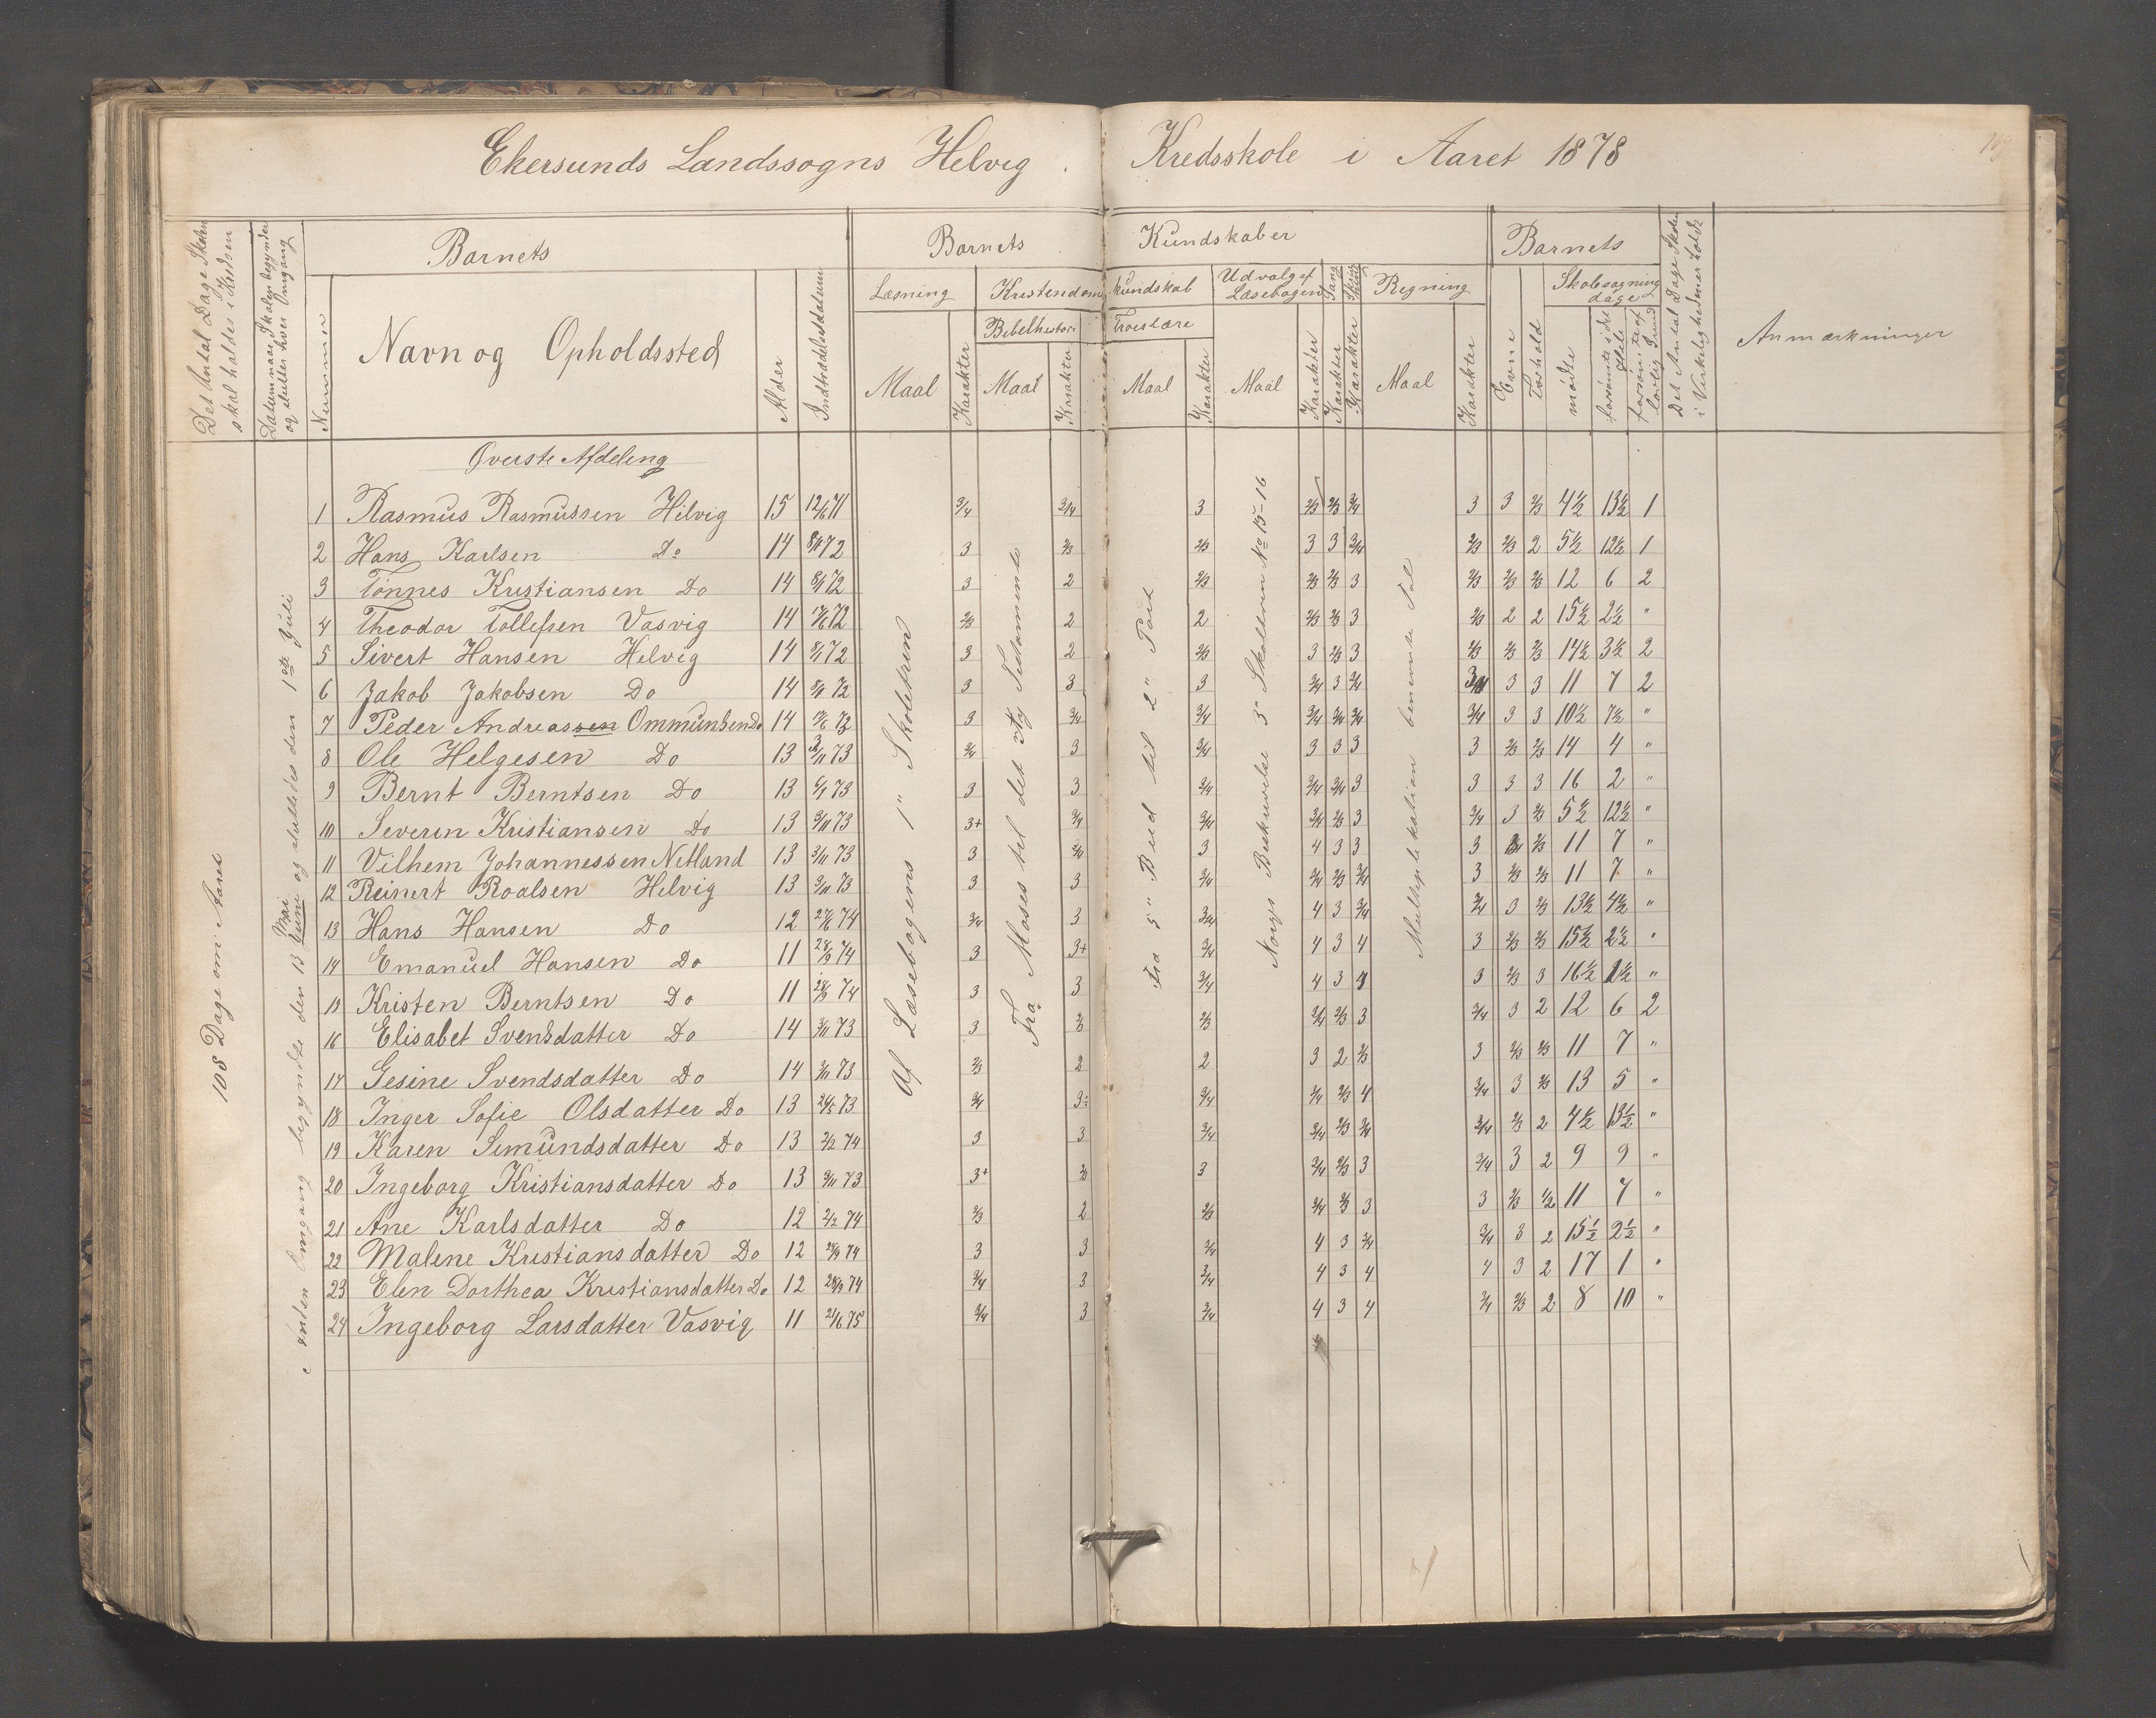 Ekersunds Landssogns Helvig. Kredsskole i Aaret 1878
Det Antal Dage Skolen skal holdes i Kredsen
Datum naar Skolen begynder og slutter hver Omgang
Barnets
Nummer
Navn og Opholdssted
Alder
Indtrædelsesdatum
Barnets Kundskaber
Læsning
Maal
Karakter
Kristendomskundskab
Bibelhistorie
Maal
Karakter
Troeslære
Maal
Karakter
Udvalg af Læsebogen
Maal
Karakter
Sang
Karakter
Karakter
Regning
Maal
Karakter
Barnets
Evne
Forhold
Skolesøgningsdage
mødte
forsømte i det Hele
forsømte af lovlig Grund
Det Antal Dage Skolen i Virkeligheden er holdt
Anmærkninger
108 Dage om Aaret
Anden Omgang begyndte den 13 Mai og sluttedes den 1ste Juli
Af Læsebogens 1" Skoletrin
Fra Moses til det ny Testamente
Fra 5" Bud til 2" Part
Norges Beskrivelse 3" Skoletrin No 15-16
Multiplikation benevnte Tal
Øverste Afdeling
1 Rasmus Rasmussen Helvig 15 12/6 71 3/4 3/4 3 2/3 2/3 3/4 3 3 2/3 4½ 13½ 1
2 Hans Karlsen Do 14 8/1 72 3 2/3 2/3 3 3 3/4 2/3 2/3 2 5½ 12½ 1
3 Tønnes Kristiansen Do 14 8/1 72 3 2 2/3 2/3 2/3 3 2/3 2/3 2/3 12 6 2
4 Theodor Tollefsen Vasvig 14 72 2/3 2 2 2/3 2/3 3 2/3 2 2 15½ 2½ "
5 Sivert Hansen Helvig 14 8/1 72 3 2 2/3 3 2/3 3 2/3 2/3 2/3 14½ 3½ 2
6 Jakob Jakobsen Do 14 8/1 72 3 3 3 3/4 3 3/4 3/4 3 3 11 7 2
7 Peder Andreassen Ommundsen Do 14 72 3 3/4 3/4 3/4 3/4 3/4 3/4 3 3 10½ 7½ "
8 Ole Helgesen Do 13 3/11 73 3/4 3 3/4 3 3 3 3 2/3 2/3 14 4 "
9 Bernt Berntsen Do 13 6/1 73 3 3 3/4 3/4 3/4 3 3 3 3 16 2 "
10 Severin Kristiansen Do 13 3/11 73 3+ 3/4 3/4 3/4 2/3 3 3/4 3 2/3 5½ 12½ "
11 Vilhem Johannessen Netland 13 3/11 73 3 3/4 3 4 3 3 3 2/3 11 7 "
12 Reinert Roalsen Helvig 13 3/11 73 3 3 3/4 3/4 2/3 3/4 3 2/3 2/3 11 7 "
13 Hans Hansen Do 12 27/6 74 3/4 3 3/4 4 3 3/4 3/4 3 2/3 13½ 4½ "
14 Emanuel Hansen Do 11 28/9 74 3 3+ 3/4 4 3 4 3 2/3 2/3 15½ 2½ "
15 Kristen Berntsen Do 11 28/9 74 3 3 3/4 4 3 4 3 2/3 3 16½ 1½ "
16 Elisabet Svendsdatter Do 14 3/11 73 3 2/3 2/3 3/4 2/3 3 3/4 3 2 12 6 2
17 Gesine Svendsdatter Do 14 3/11 73 2/3 2 2 3 2 2/3 3 2/3 2/3 11 7 "
18 Inger Sofie Olsdatter Do 13 24/5 73 3/4 3÷ 3/4 3/4 2/3 4 3/4 3 2/3 13 5 "
19 Karen Simundsdatter Do 13 2/2 74 3 3 3/4 3/4 2/3 3/4 3/4 2/3 2 4½ 13½ "
20 Ingeborg Kristiansdatter Do 13 3/11 73 3+ 2/3 3 3/4 2/3 3 3/4 3 2 9 9 "
21 Ane Karlsdatter Do 12 2/2 74 2/3 2 2/3 3/4 2/3 3 3 2/3 1/2 11 7 "
22 Malene Kristiansdatter Do 12 28/9 74 3 3 3/4 4 3 3/4 3/4 3 2 15½ 2½ "
23 Elen Dorthea Kristiansdatter Do 12 28/9 74 3/4 3 3/4 4 3 4 4 3 2 17 1 "
24 Ingeborg Larsdatter Vasvig 11 21/6 75 3/4 3 3/4 4 3 4 3/4 2/3 2 8 10 "